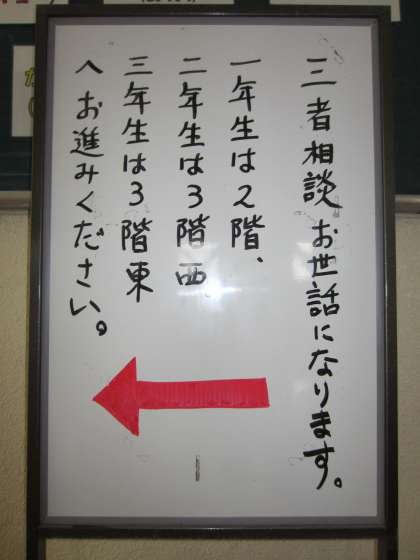 三者相談、お世話になります。
一年生は2階、
二年生は3階西
三年生は3階東
へお進みください。